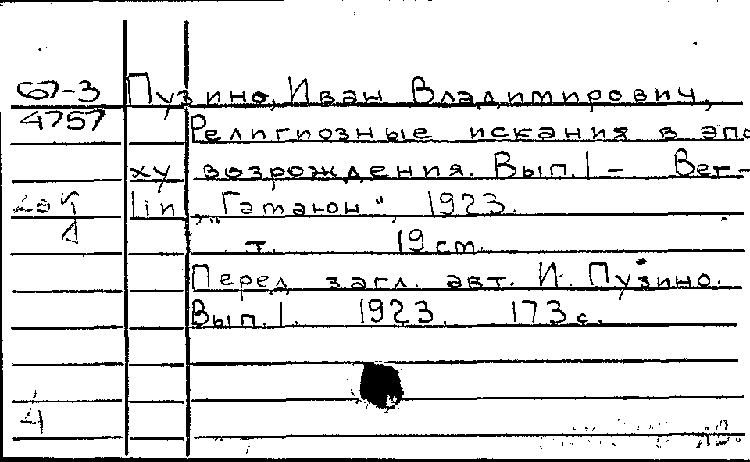 67-3 Пузино, Иван Владимирович,
4757 Религиозные искания в эпо
ху возрождения. Вып. 1 - Бег-
lin, "Гамаюн", 1923.
т. 19 см.
Перед загл. авт. И. Пузино.
Вып. 1. 1923. 173 с.
4